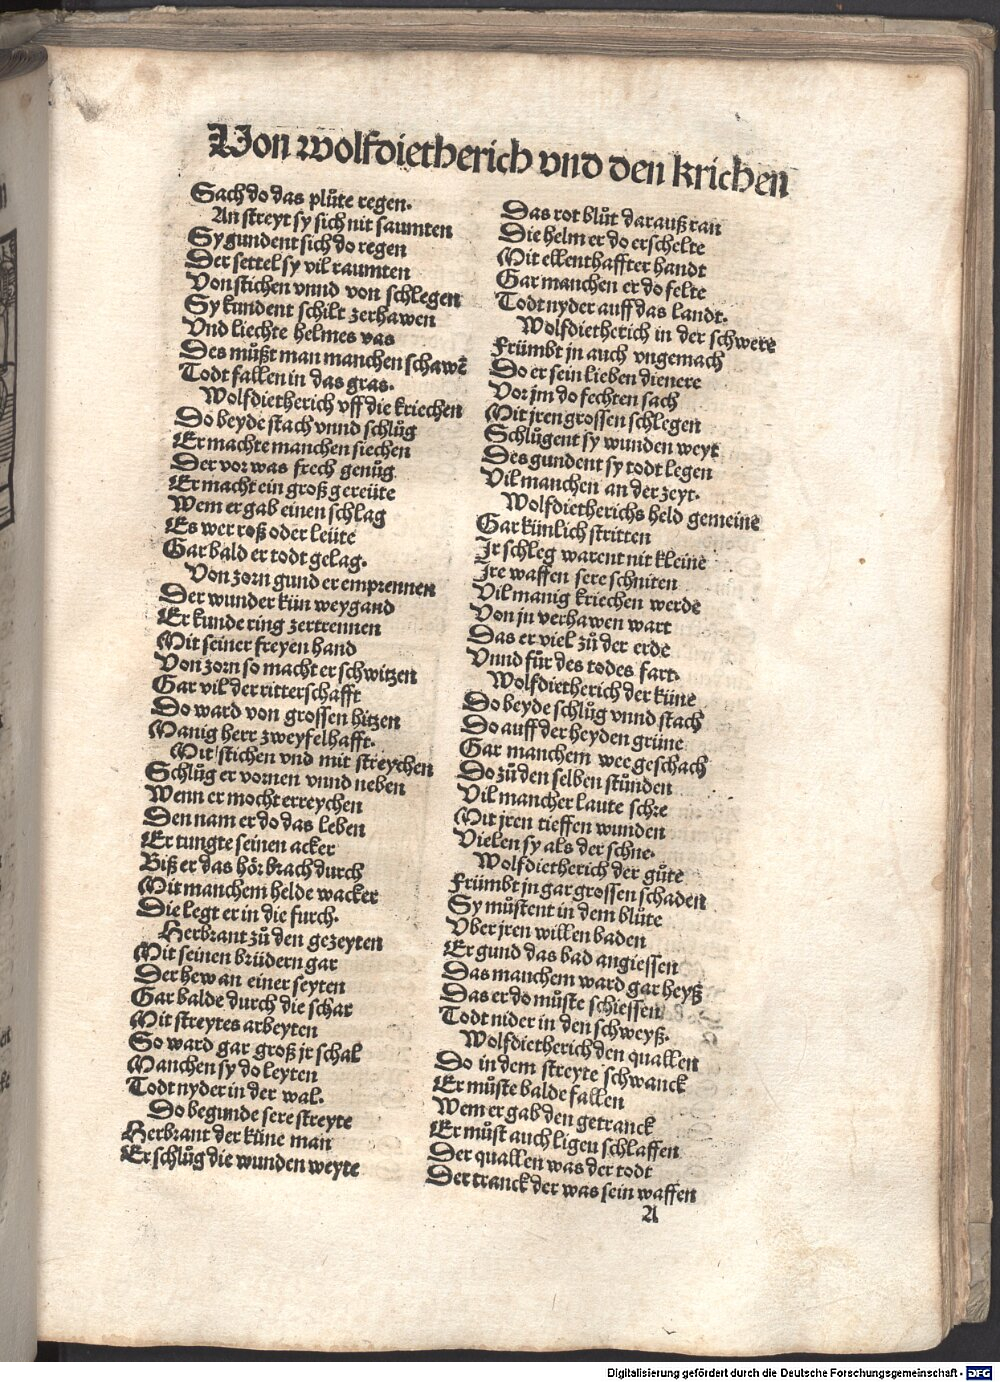 Von wolfdietherich vnd den krichen
Sach do das plůte regen.
An streyt sy sich nit saumten
Sy gundent sich do regen
Der settel sy vil raumten
Von stichen vnnd von schlegen
Sy kundent schilt zerhawen
Vnd liechte helmes vas
Des můßt man manchen schawē
Todt fallen in das gras.
Wolfdietherich vff die kriechen
Do beyde stach vnnd schlůg
Er machte manchen siechen
Der vor was frech genůg
Er macht ein groß gereüte
Wem er gab einen schlag
Es wer roß oder leüte
Gar bald er todt gelag.
Von zorn gund er emprennen
Der wunder kün weygand
Er kunde ring zertrennen
Mit seiner freyen hand
Von zorn so macht er schwitzen
Gar vil der ritterschafft
Do ward von grossen hitzen
Manig herr zweyfelhafft.
Mit stichen vnd mit streychen
Schlůg er vornen vnnd neben
Wenn er mocht erreychen
Den nam er do das leben
Er tungte seinen acker
Biß er das hör brach durch
Mit manchem helde wacker
Die legt er in die furch.
Herbrant zů den gezeyten
Mit seinen brüdern gar
Der hew an einer seyten
Gar balde durch die schar
Mit streytes arbeyten
So ward gar groß jr schal
Manchen sy do leyten
Todt nyder in der wal.
Do begunde sere streyte
Herbrant der küne man
Er schlůg die wunden weyte
Das rot blůt darauß ran
Die helm er do erschelte
Mit ellenthaffter handt
Gar manchen er do felte
Todt nyder auff das landt.
Wolfdietherich in der schwere
Frümbt jn auch vngemach
Do er sein lieben dienere
Vor jm do fechten sach
Mit jren grossen schlegen
Schlůgent sy wunden weyt
Des gundent sy todt legen
Vil manchen an der zeyt.
Wolfdietherichs held gemeine
Gar künlich stritten
Jr schleg warent nit kleine
Jre waffen sere schniten
Vil manig kriechen werde
Von jn verhawen wart
Das er viel zů der erde
Vnnd fůr des todes fart.
Wolfdietherich der küne
Do beyde schlůg vnnd stach
Do auff der heyden grüne
Gar manchem wee geschach
Do zů den selben stůnden
Vil mancher laute schre
Mit jren tieffen wunden
Vielen sy als der schne.
Wolfdietherich der gůte
Frümbt jn gar grossen schaden
Sy můstent in dem blůte
Vber jren willen baden
Er gund das bad angiessen
Das manchem ward gar heyß
Das er do můste schiessen
Todt nider in den schweyß.
Wolfdietherich den quallen
Do in dem streyte schwanck
Er můste balde fallen
Wem er gab den getranck
Er můst auch ligen schlaffen
Der quallen was der todt
Der tranck der was sein waffen
A
Digitalisierung gefördert durch die Deutsche Forschungsgemeinschaft - DFG